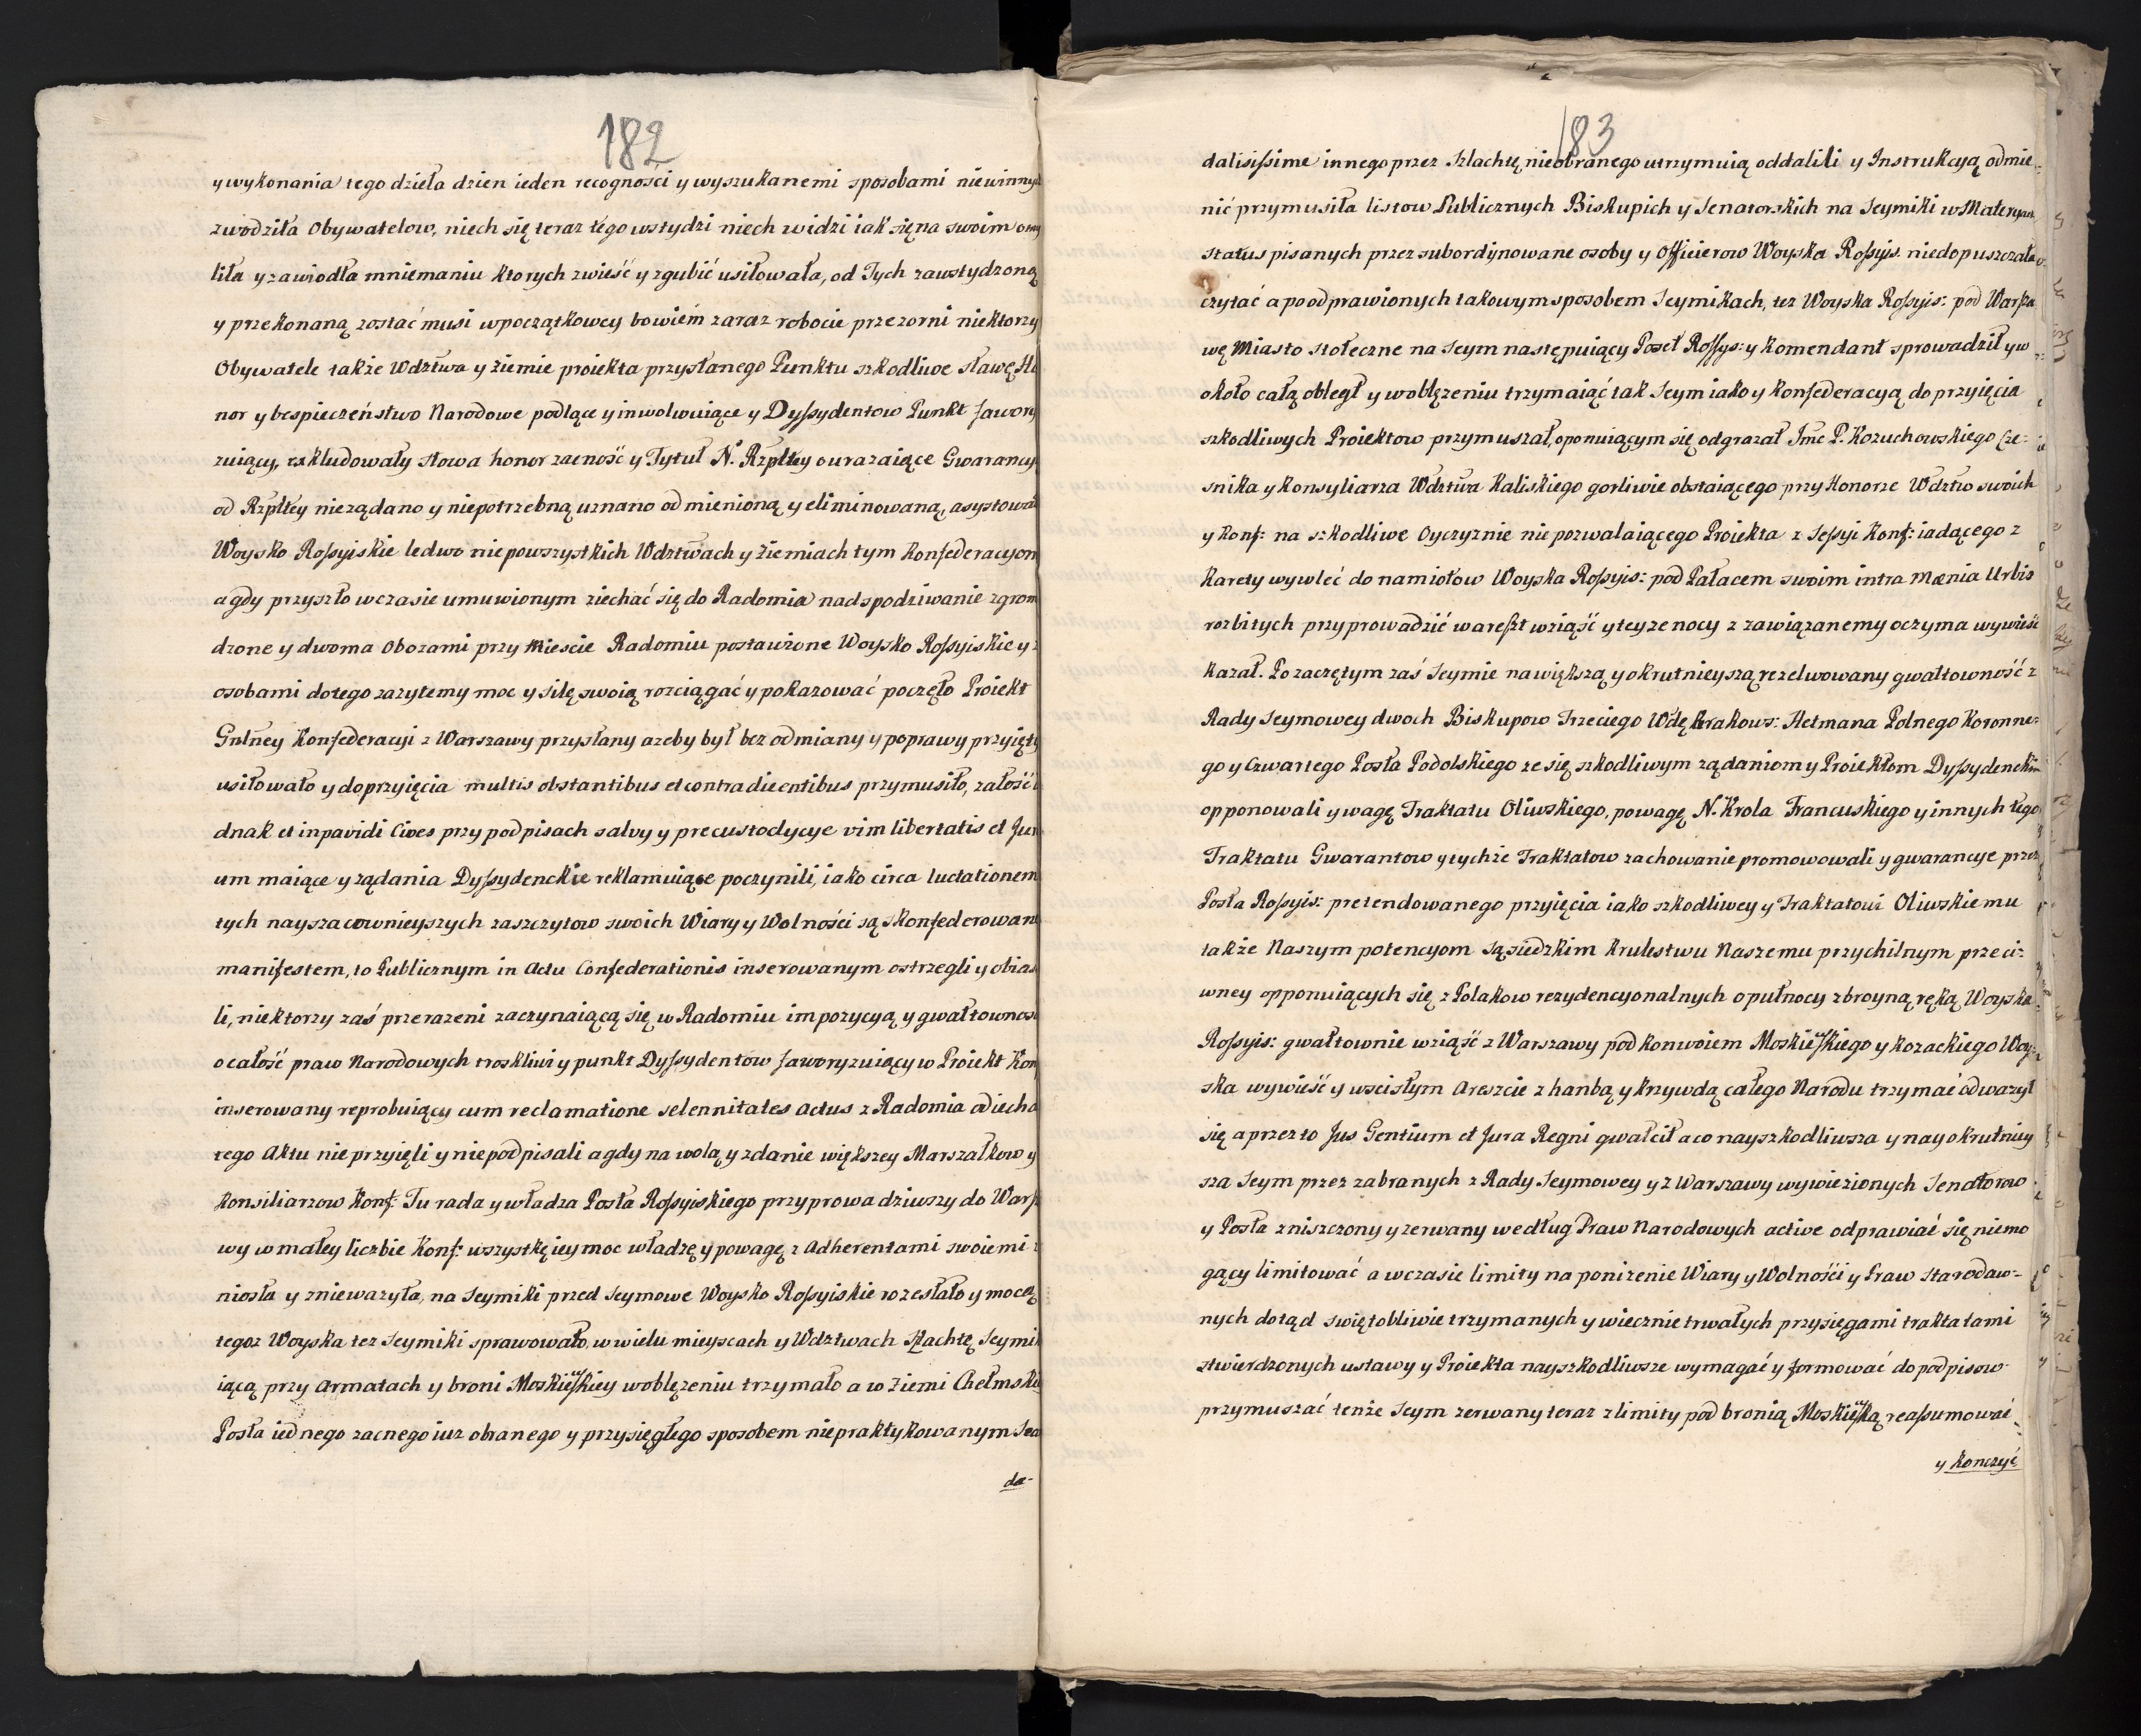 182
y wykonania tego dzieła dzien ieden recognosci y wyszukanemi sposobami niewinnych
zwodziła Obywatelow, niech się teraz tego wstydzi niech widzi iak się na swoim omy
liła y zawiodła mniemaniu ktorych zwieść y zgubić usiłowała, od Tych zawstydzoną
y przekonaną zostać musi w początkowey bowiem zaraz robocie przezorni niektorzy
Obywatele także Wdztwa y ziemie proiekta przysłanego Punktu szkodliwe sławę Ho
nor y bespieczeństwo Narodowe podlące y inwolwuiące y Dyssydentow Punkt fawory
zuiący, exkludowały słowa honor zacność y Tytuł N. Rzpltey ourazaiące Gwarancyą
od Rzpltey nieządano y niepotrzebną uznano odmienioną y eliminowaną, asystowa
Woysko Rossyiskie ledwo nie powszystkich Wdztwach y ziemiach tym Konfederacyom
a gdy przyszło w czasie umuwionym ziechać się do Radomia nadspodziwanie zgrom
dzone y dwoma Obozami przy Miescie Radomiu postawione Woysko Rossyiskie y z
osobami dotego zazytemy moc y siłę swoią rozciągać y pokazować poczęło Proiekt
Gnlney Konfederacyi z Warszawy przysłany azeby był bez odmiany y poprawy przyięty
usiłowało y do przyięcia multis obstantibus et contradicentibus przymusiło, załość i
dnak et inpavidi Cives przy podpisach salvy y precustodycye vim libertatis et Jur
um maiące y ządania Dyssydenckie reklamuiące poczynili, iako circa luctationem
tych nayszacownieyszych zaszczytow swoich Wiary y Wolności są skonfederowani
manifestem, to Publicznym in Actu Confederationis inserowanym ostrzegli y obias
li, niektorzy zaś przerazeni zaczynaiącą się w Radomiu impozycyą y gwałtownosc
o całość praw Narodowych troskliwi y punkt Dyssydentow faworyzuiący w Proiekt Kon
inserowany reprobuiący cum reclamatione solennitates actus z Radomia odiecha
tego Aktu nie przyięli y nie podpisali a gdy na wolą y zdanie większey Marszałkow y
Konsiliarzow Konf: Tu rada y władza Posła Rossyiskiego przyprowadziwszy do Warsz
wy w małey liczbie Konf: wszystkę iey moc władzę y powagę z Adherentami swoiemi z
niosła y zniewazyła, na Seymiki przed Seymowe Woysko Rossyiskie rozesłało y mocą
tegoz Woyska tez Seymiki sprawowało, w wielu mieyscach y Wdztwach Szachtę Seymik
iącą przy armatach y broni Moskiewskiey w oblęzeniu trzymało a w Ziemi Chełmskiey
Posła iednego zacnego iuz obranego y przysięgłego sposobem niepraktykowanym Sca
da-
183
dalisissime innego przez Szlachtę nieobranego utrzymuią oddalili y Instrukcyą odmie-
nić przymusiła listow Publicznych Biskupich y Senatorskich na Seymiki w Materyach
status pisanych przez subordynowane osoby y Officierow Woyska Rossyis. niedopuszczała
czytać a po odprawionych takowym sposobem Seymikach, tez Woyska Rossyis: pod Warsza
wę Miasto stołeczne na Seym następuiący Poseł Rossys: y Komendant sprowadził y w
około całą obległ y w oblęzeniu trzymaiąć tak Seym iako y Konfederacyą do przyięcia
szkodliwych Proiektow przymuszał, oponuiącym się odgrazał Jmc P. Kozuchowskiego Cze-
snika y Konsyliarza Wdztwa Kaliskiego gorliwie obstaiącego przy Honorze Wdztw swoich
y Konf: na szkodliwe Oyczyznie nie pozwalaiącego Proiekta z Sessyi Konf: iadącego z
Karety wywleć do namiotow Woyska Rossyis: pod Pałacem swoim intra Mœnia Urbis
rozbitych przyprowadzić w areszt wziąść y teyze nocy z zawiązanemy oczyma wywieść
kazał. Po zaczętym zaś Seymie na większą y okrutnieyszą rezelwowany gwałtowność z
Rady Seymowey dwoch Biskupow Trzeciego Wdę Krakows: Hetmana Polnego Koronne-
go y Czwartego Posła Podolskiego ze się szkodliwym ządaniom y Proiektom Dyssydenckim
opponowali y wagę Traktatu Oliwskiego, powagę N. Krola Francuskiego y innych tego
Traktatu Gwarantow y tychże Traktatow zachowanie promowowali y gwarancye przez
Posła Rossyis: pretendowanego przyięcia iako szkodliwey y Traktatowi Oliwskiemu
także Naszym potencyom sąsiedzkim Krulestwu Naszemu przychilnym przeci-
wney opponuiących się z Polakow rezydencyonalnych o pułnocy zbroyną ręką Woyska
Rossyis: gwałtownie wziąść z Warszawy pod konwoiem Moskiewskiego y kozackiego Woy-
ska wywieść y w scisłym Areszcie z hanbą y krzywdą całego Narodu trzymać odwazył
się a przez to Jus Gentium et Jura Regni gwałcił a co nayszkodliwsza y nayokrutniey
sza Seym przez zabranych z Rady Seymowey y z Warszawy wywiezionych Senatorow
y Posła zniszczony y zerwany według Praw Narodowych active odprawiać się niemo
gący limitować a w czasie limity na ponizenie Wiary y Wolności y Praw Starodaw-
nych dotąd swiętobliwie trzymanych y wiecznie trwałych przysięgami traktatami
stwierdzonych ustawy y Proiekta nayszkodliwsze wymagać y formować do podpisow
przymuszać tenże Seym zerwany teraz z limity pod bronią Moskiewską reassumować
y konczyć